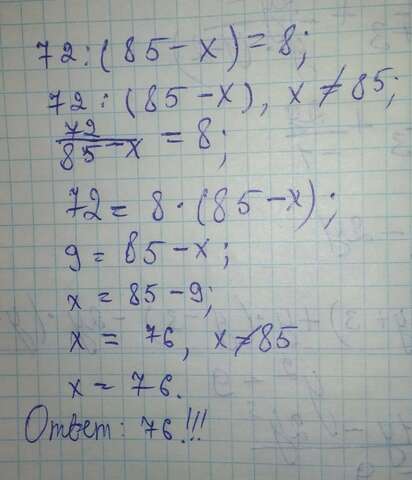 72:(85-x)=8;
72:(85-x), x≠85;
72
85-x = 8;
72 = 8·(85-x);
9 = 85-x;
x = 85-9;
x = 76, x≠85
x = 76.
Ответ: 76.!!!